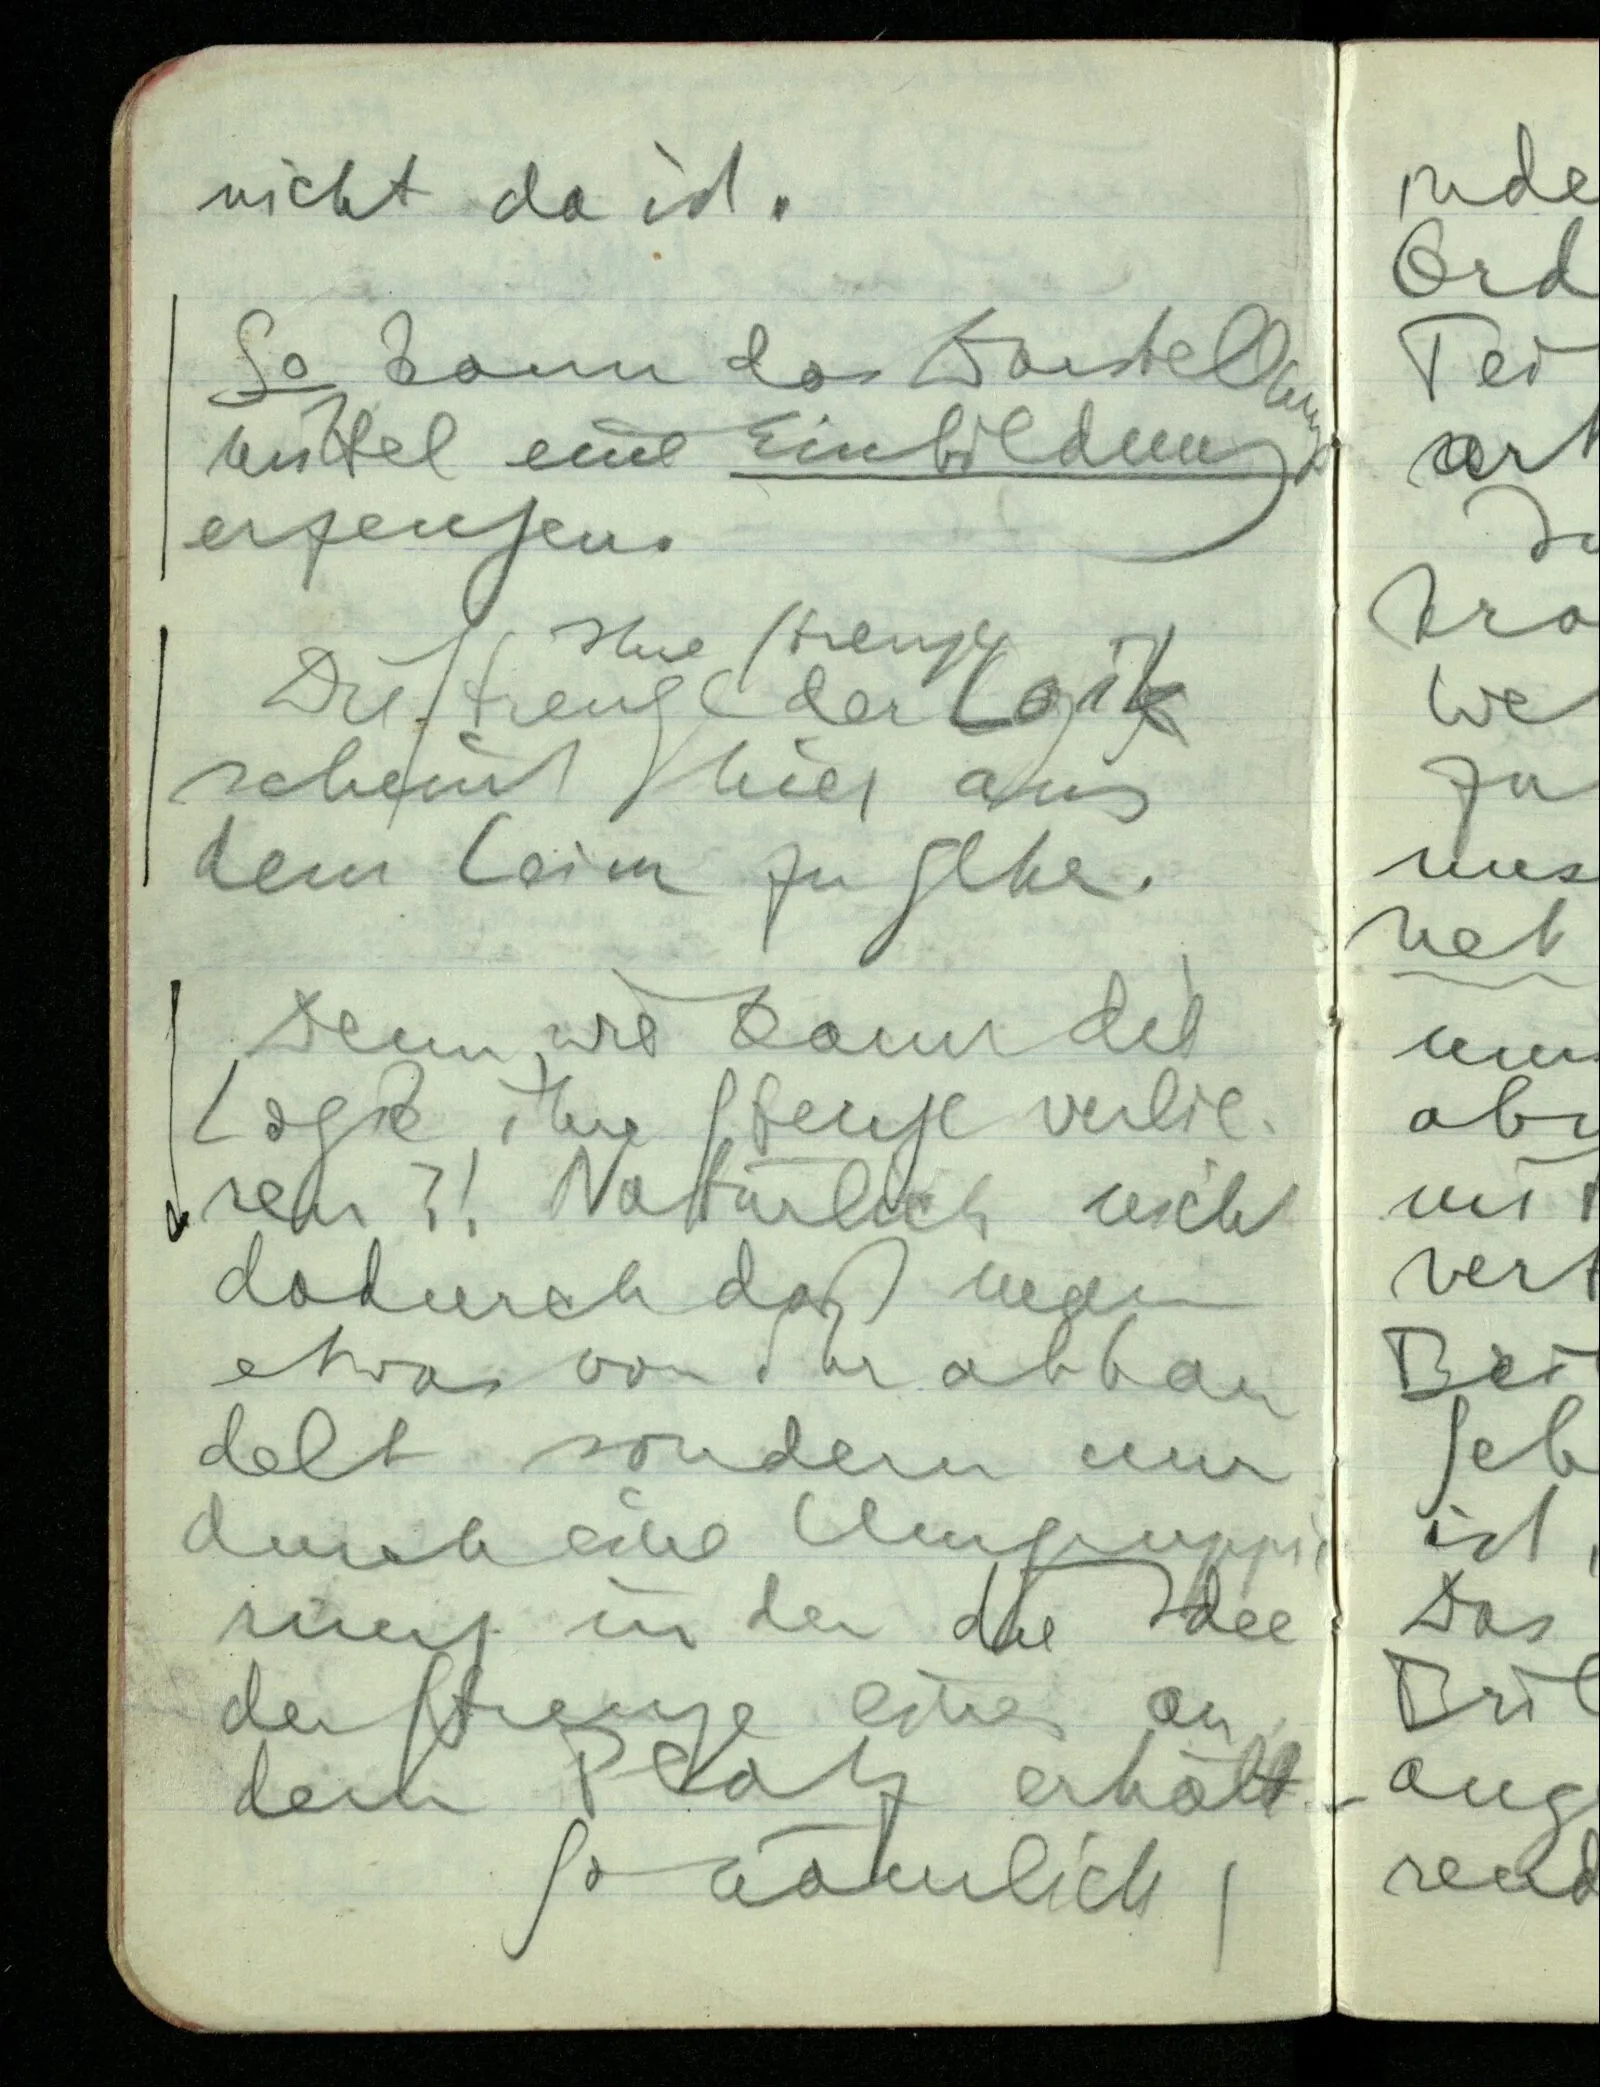 nicht da ist.
So kann das Darstellungs
mittel eine Einbildung
erzeugen.
ihre Strenge
Die Strenge der Logik
scheint hier aus
dem Leim zu gehe.
Denn wie kann die
Logik ihre Strenge verlie-
ren?! Natürlich nicht
dadurch daß man
etwas von ihr abhan
delt sondern nur
durch eine Umgruppie
rung in der die Idee
der Strenge einen an
dern Platz erhält.
So nämlich,
inde
Ord
Teil
art
kra
we
zu
mus
net
uns
ab
mit
vert
Bei
Geb
ist,
Das
Bril
ange
rend